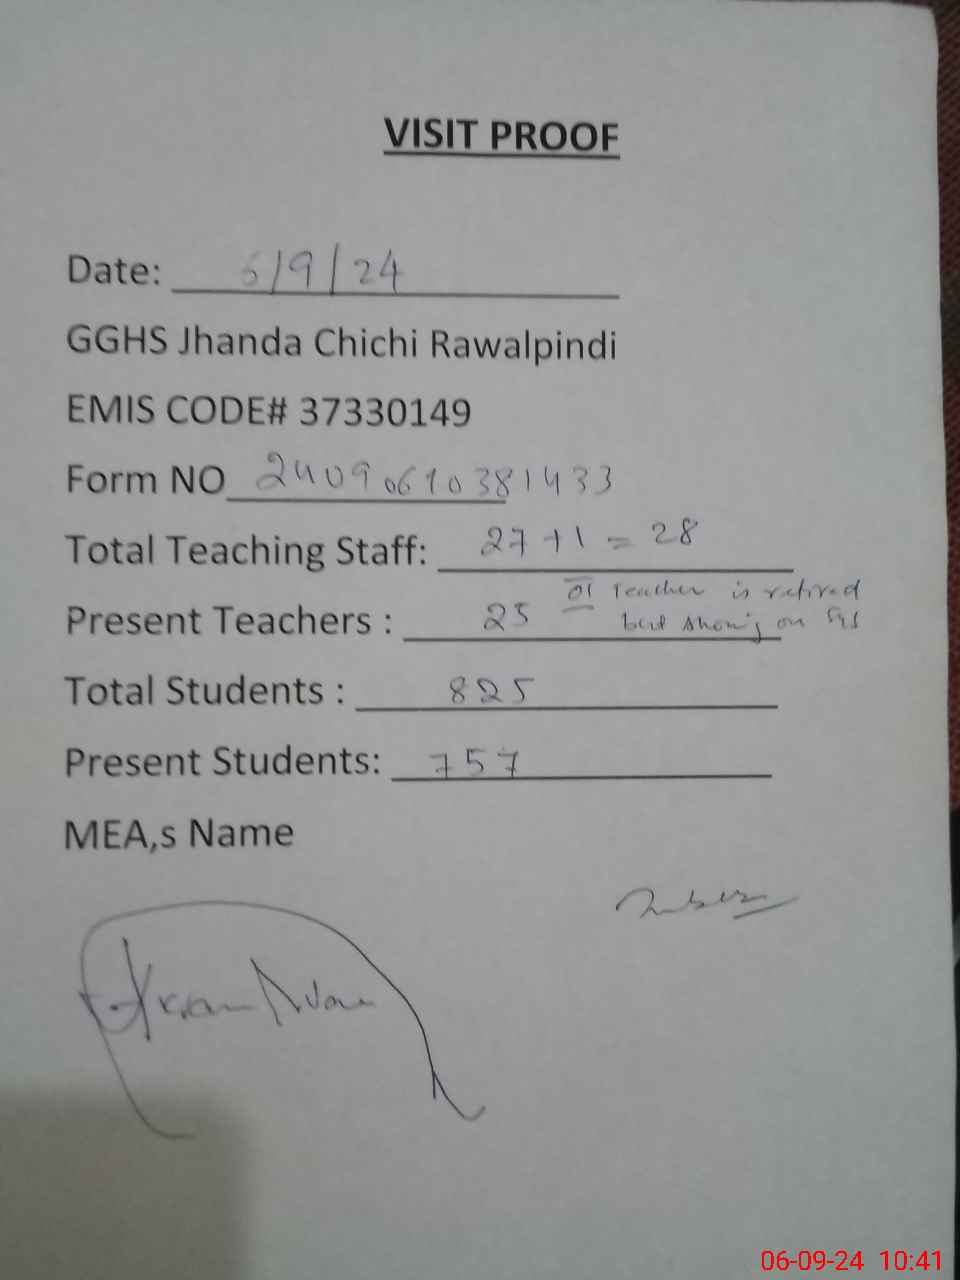 VISIT PROOF
Date: 6/9/24
GGHS Jhanda Chichi Rawalpindi
EMIS CODE# 37330149
Form NO 24090610381433
Total Teaching Staff: 27+1 = 28
Present Teachers : 25 01 Teacher is retired
but showing on SIS
Total Students : 825
Present Students: 757
MEA,s Name
06-09-24 10:41